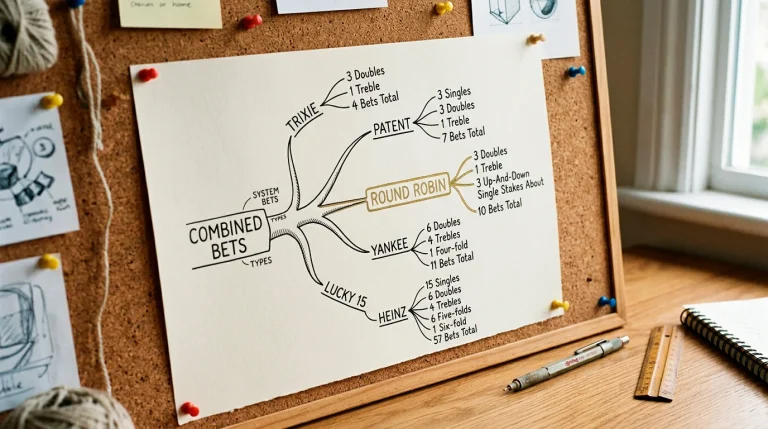 chain or home
TRIXIE
3 Doubles
1 Treble
4 Bets Total
PATENT
3 Singles
3 Doubles
1 Treble
7 Bets Total
SYSTEM
BETS
TYPES
COMBINED
BETS
TYPES
ROUND ROBIN
3 Doubles
1 Treble
3 Up-And-Down
Single Stakes About
10 Bets Total
YANKEE
6 Doubles
4 Trebles
1 Four-fold
11 Bets Total
LUCKY 15
HEINZ
15 Singles
6 Doubles
4 Trebles
6 Five-folds
1 Six-fold
57 Bets Total